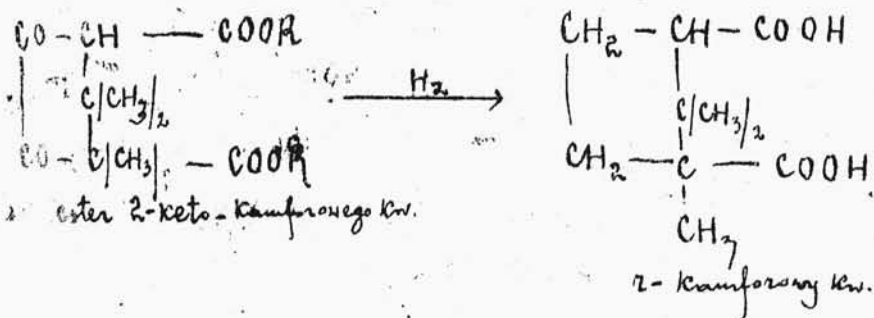 CO - CH — COOR
C/CH3/2
CO - C/CH3/ - COOR
ester 2-keto-kamforowego kw.
H2
CH2 - CH - COOH
C/CH3/2
CH2 - C - COOH
CH3
r-kamforowy kw.